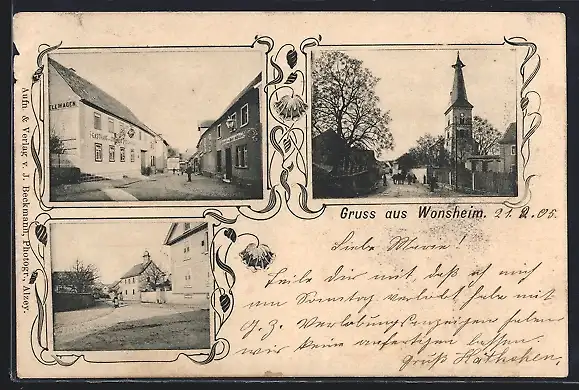 ELLWAGEN
GASTHAUS
Gruss aus Wonsheim. 21.2.05.
Liebe Marie!
Teile dir mit daß ich mich
am Sonntag verlobt habe mit
G. Z. Verlobungsanzeigen haben
wir keine anfertigen lassen.
Gruß Käthchen.
Aufn. & Verlag v. J. Beckmann, Photogr., Alzey.